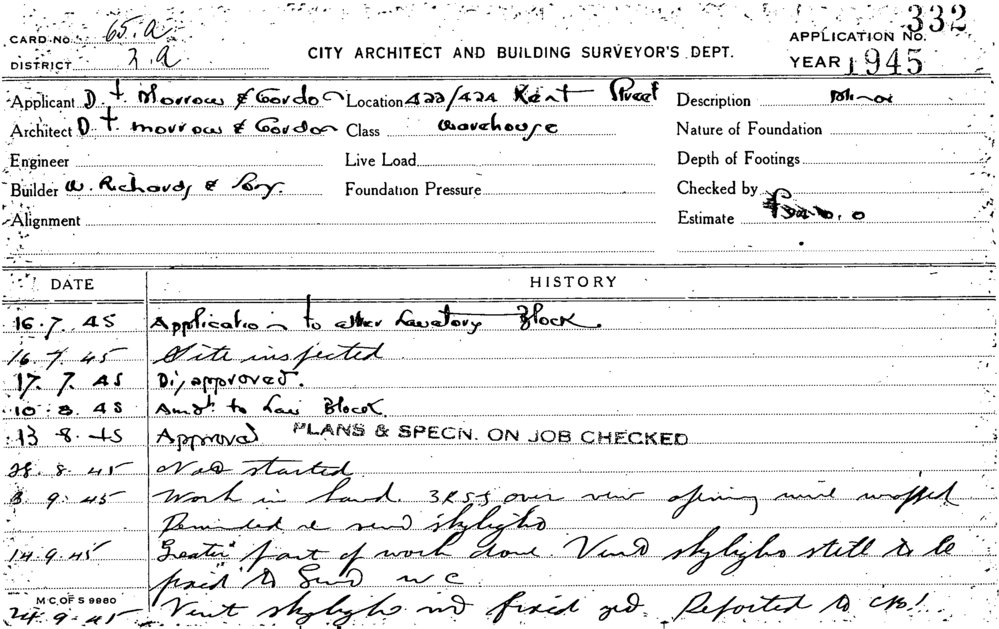 CARD No. 65.a
APPLICATION No. 332
DISTRICT 2.a
CITY ARCHITECT AND BUILDING SURVEYOR'S DEPT.
YEAR 1945
Applicant D. T. Morrow & Gordon Location 422/424 Kent Street Description Minor
Architect D. T. Morrow & Gordon Class Warehouse Nature of Foundation
Engineer Live Load Depth of Footings
Builder W. Richards & Son. Foundation Pressure Checked by
Alignment Estimate
DATE HISTORY
16.7.45 Application to alter Lavatory Block.
16.7.45 Site inspected
17.7.45 Disapproved.
10.8.45 Amdt to Lav Block
13 8.45 Approval PLANS & SPECN. ON JOB CHECKED
28.8.45 started
3.9.45 Work in hand. over new opening wrapped
re vent skylight
14.9.45 Greater part of work done. Vent skylight still to be
fixed to W C
M C. OF S 9980
24.9.45 Vent skylight not fixed yet. Reported to